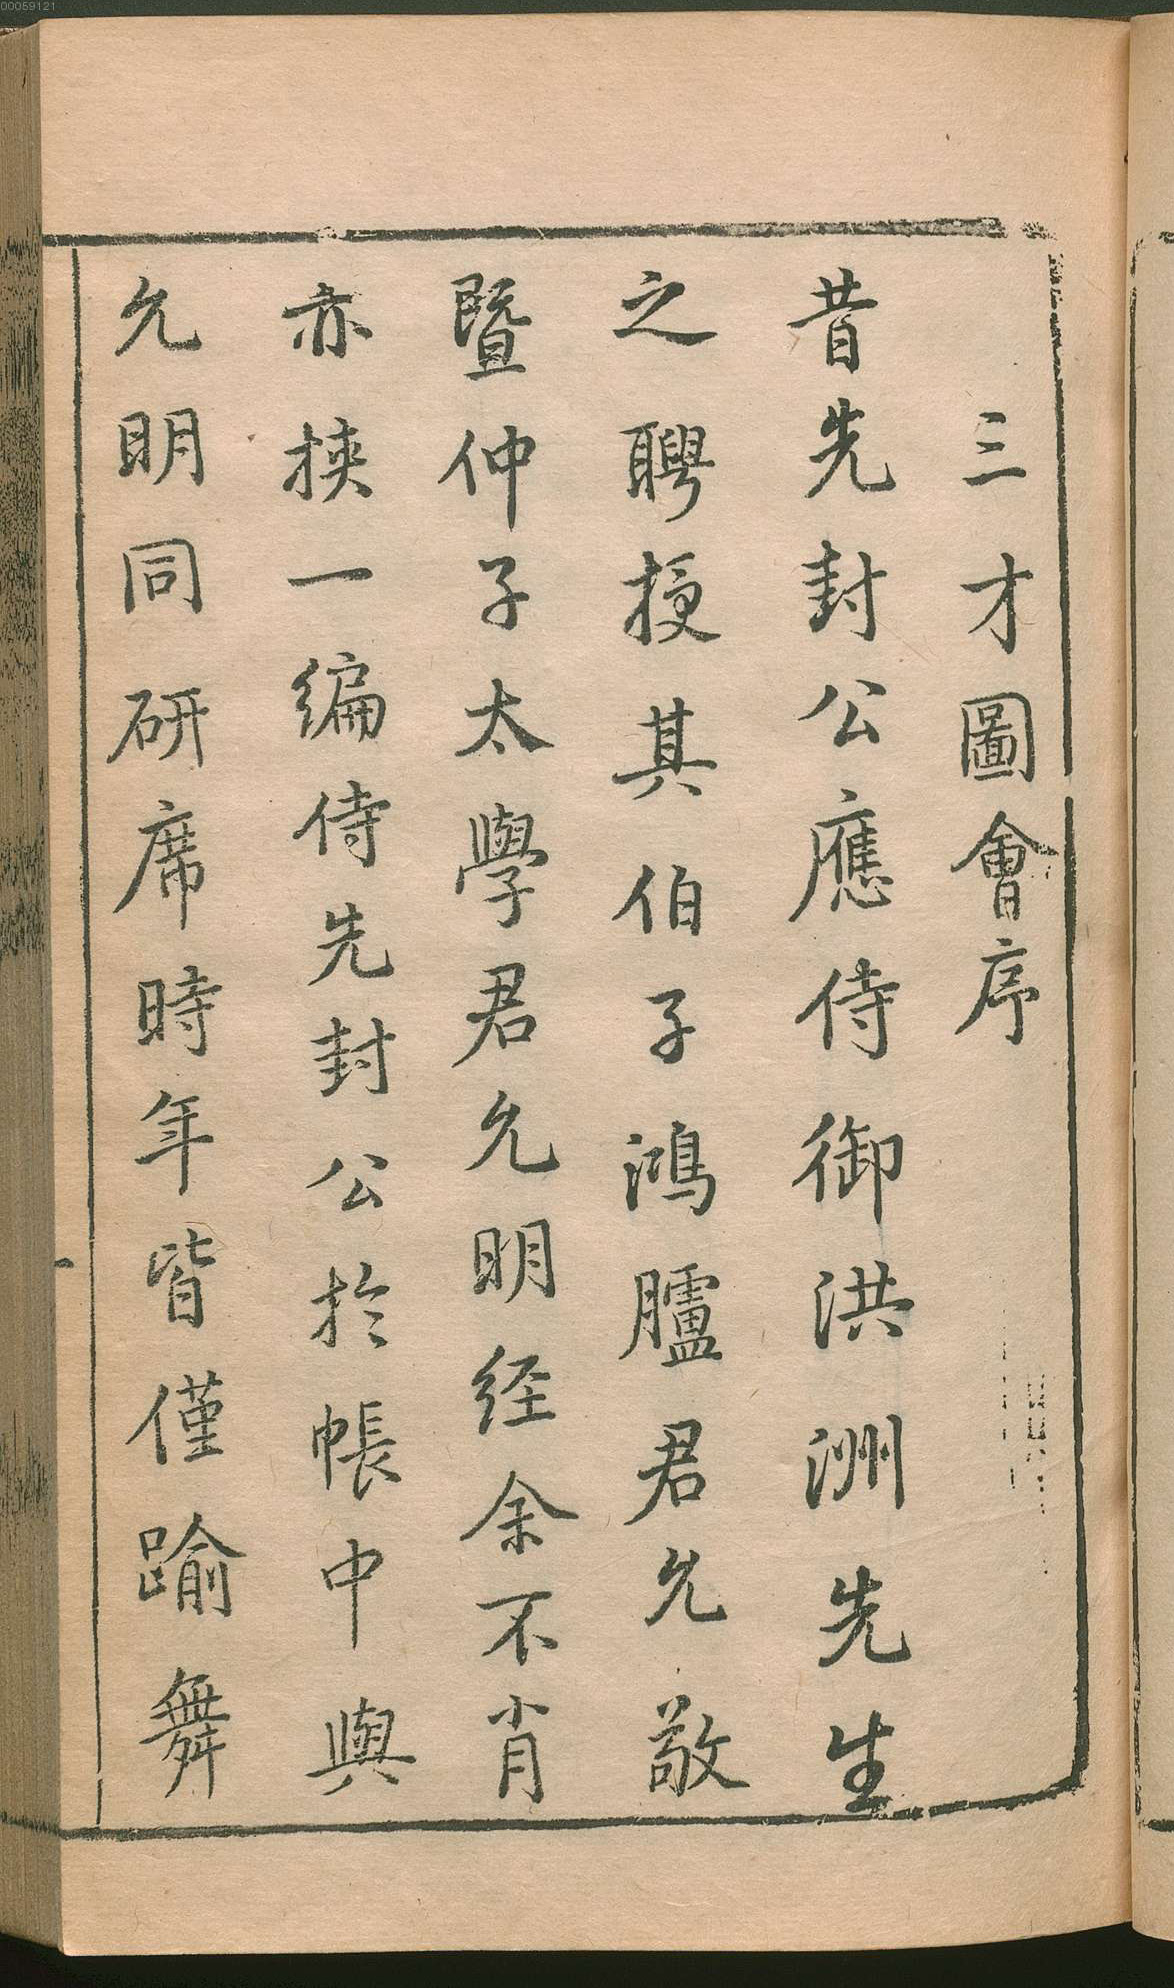 00059121
三才圖會序
昔先封公應侍御洪洲先生
之聘授其伯子鴻臚君允敬
暨仲子太學君允明經余不肖
亦挾一編侍先封公於帳中與
允明同研席時年皆僅踰舞